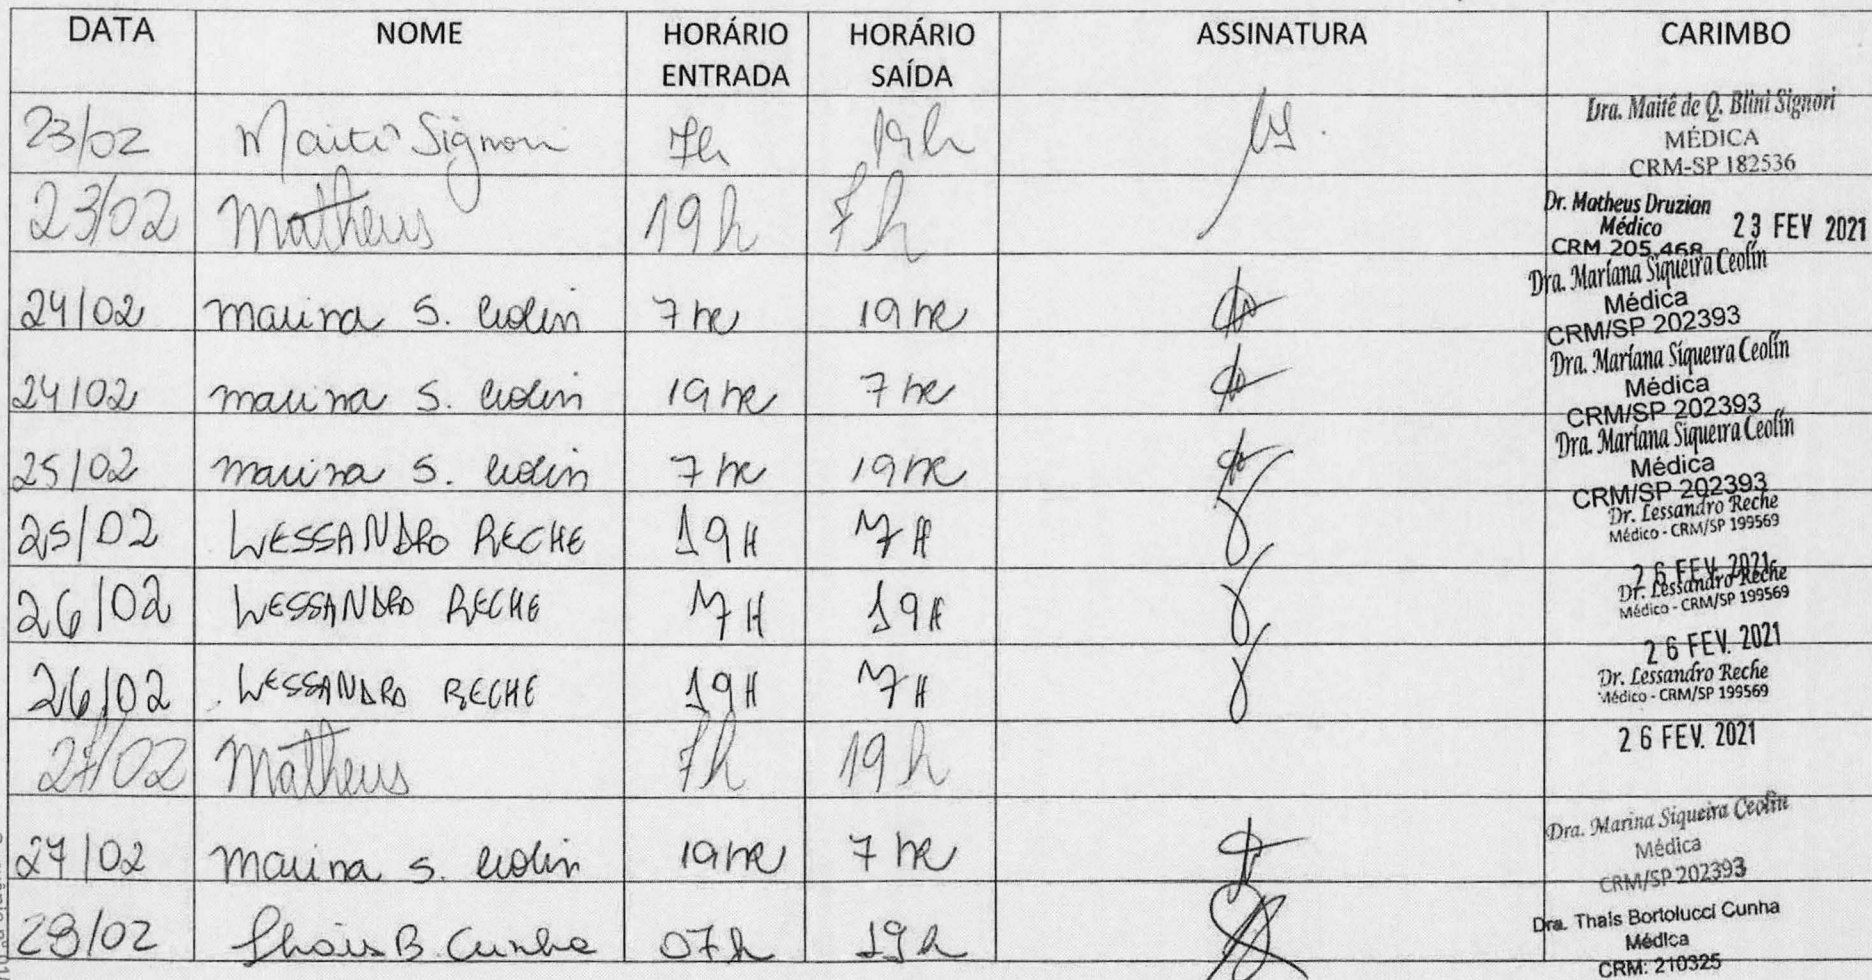 DATA NOME HORÁRIO ENTRADA HORÁRIO SAÍDA ASSINATURA CARIMBO
23/02 Maitê Signori 7h 19h Dra. Maitê de Q. Blini Signori
MÉDICA
CRM-SP 182536
23/02 Matheus 19h 7h Dr. Matheus Druzian
Médico 23 FEV 2021
CRM 205.468
24/02 Marina S. Ceolin 7hr 19hr Dra. Mariana Siqueira Ceolin
Médica
CRM/SP 202393
24/02 Marina S. Ceolin 19hr 7hr Dra. Mariana Siqueira Ceolin
Médica
CRM/SP 202393
25/02 Marina S. Ceolin 7hr 19hr Dra. Mariana Siqueira Ceolin
Médica
CRM/SP 202393
25/02 LESSANDRO RECHE 19H 7H Dr. Lessandro Reche
Médico - CRM/SP 199569
26 FEV. 2021
26/02 LESSANDRO RECHE 7H 19H Dr. Lessandro Reche
Médico - CRM/SP 199569
26 FEV. 2021
26/02 LESSANDRO RECHE 19H 7H Dr. Lessandro Reche
Médico - CRM/SP 199569
26 FEV. 2021
27/02 Matheus 7h 19h
27/02 Marina S. Ceolin 19hr 7hr Dra. Marina Siqueira Ceolin
Médica
CRM/SP 202393
28/02 Thais B. Cunha 07h 19h Dra. Thais Bortolucci Cunha
Médica
CRM: 210325